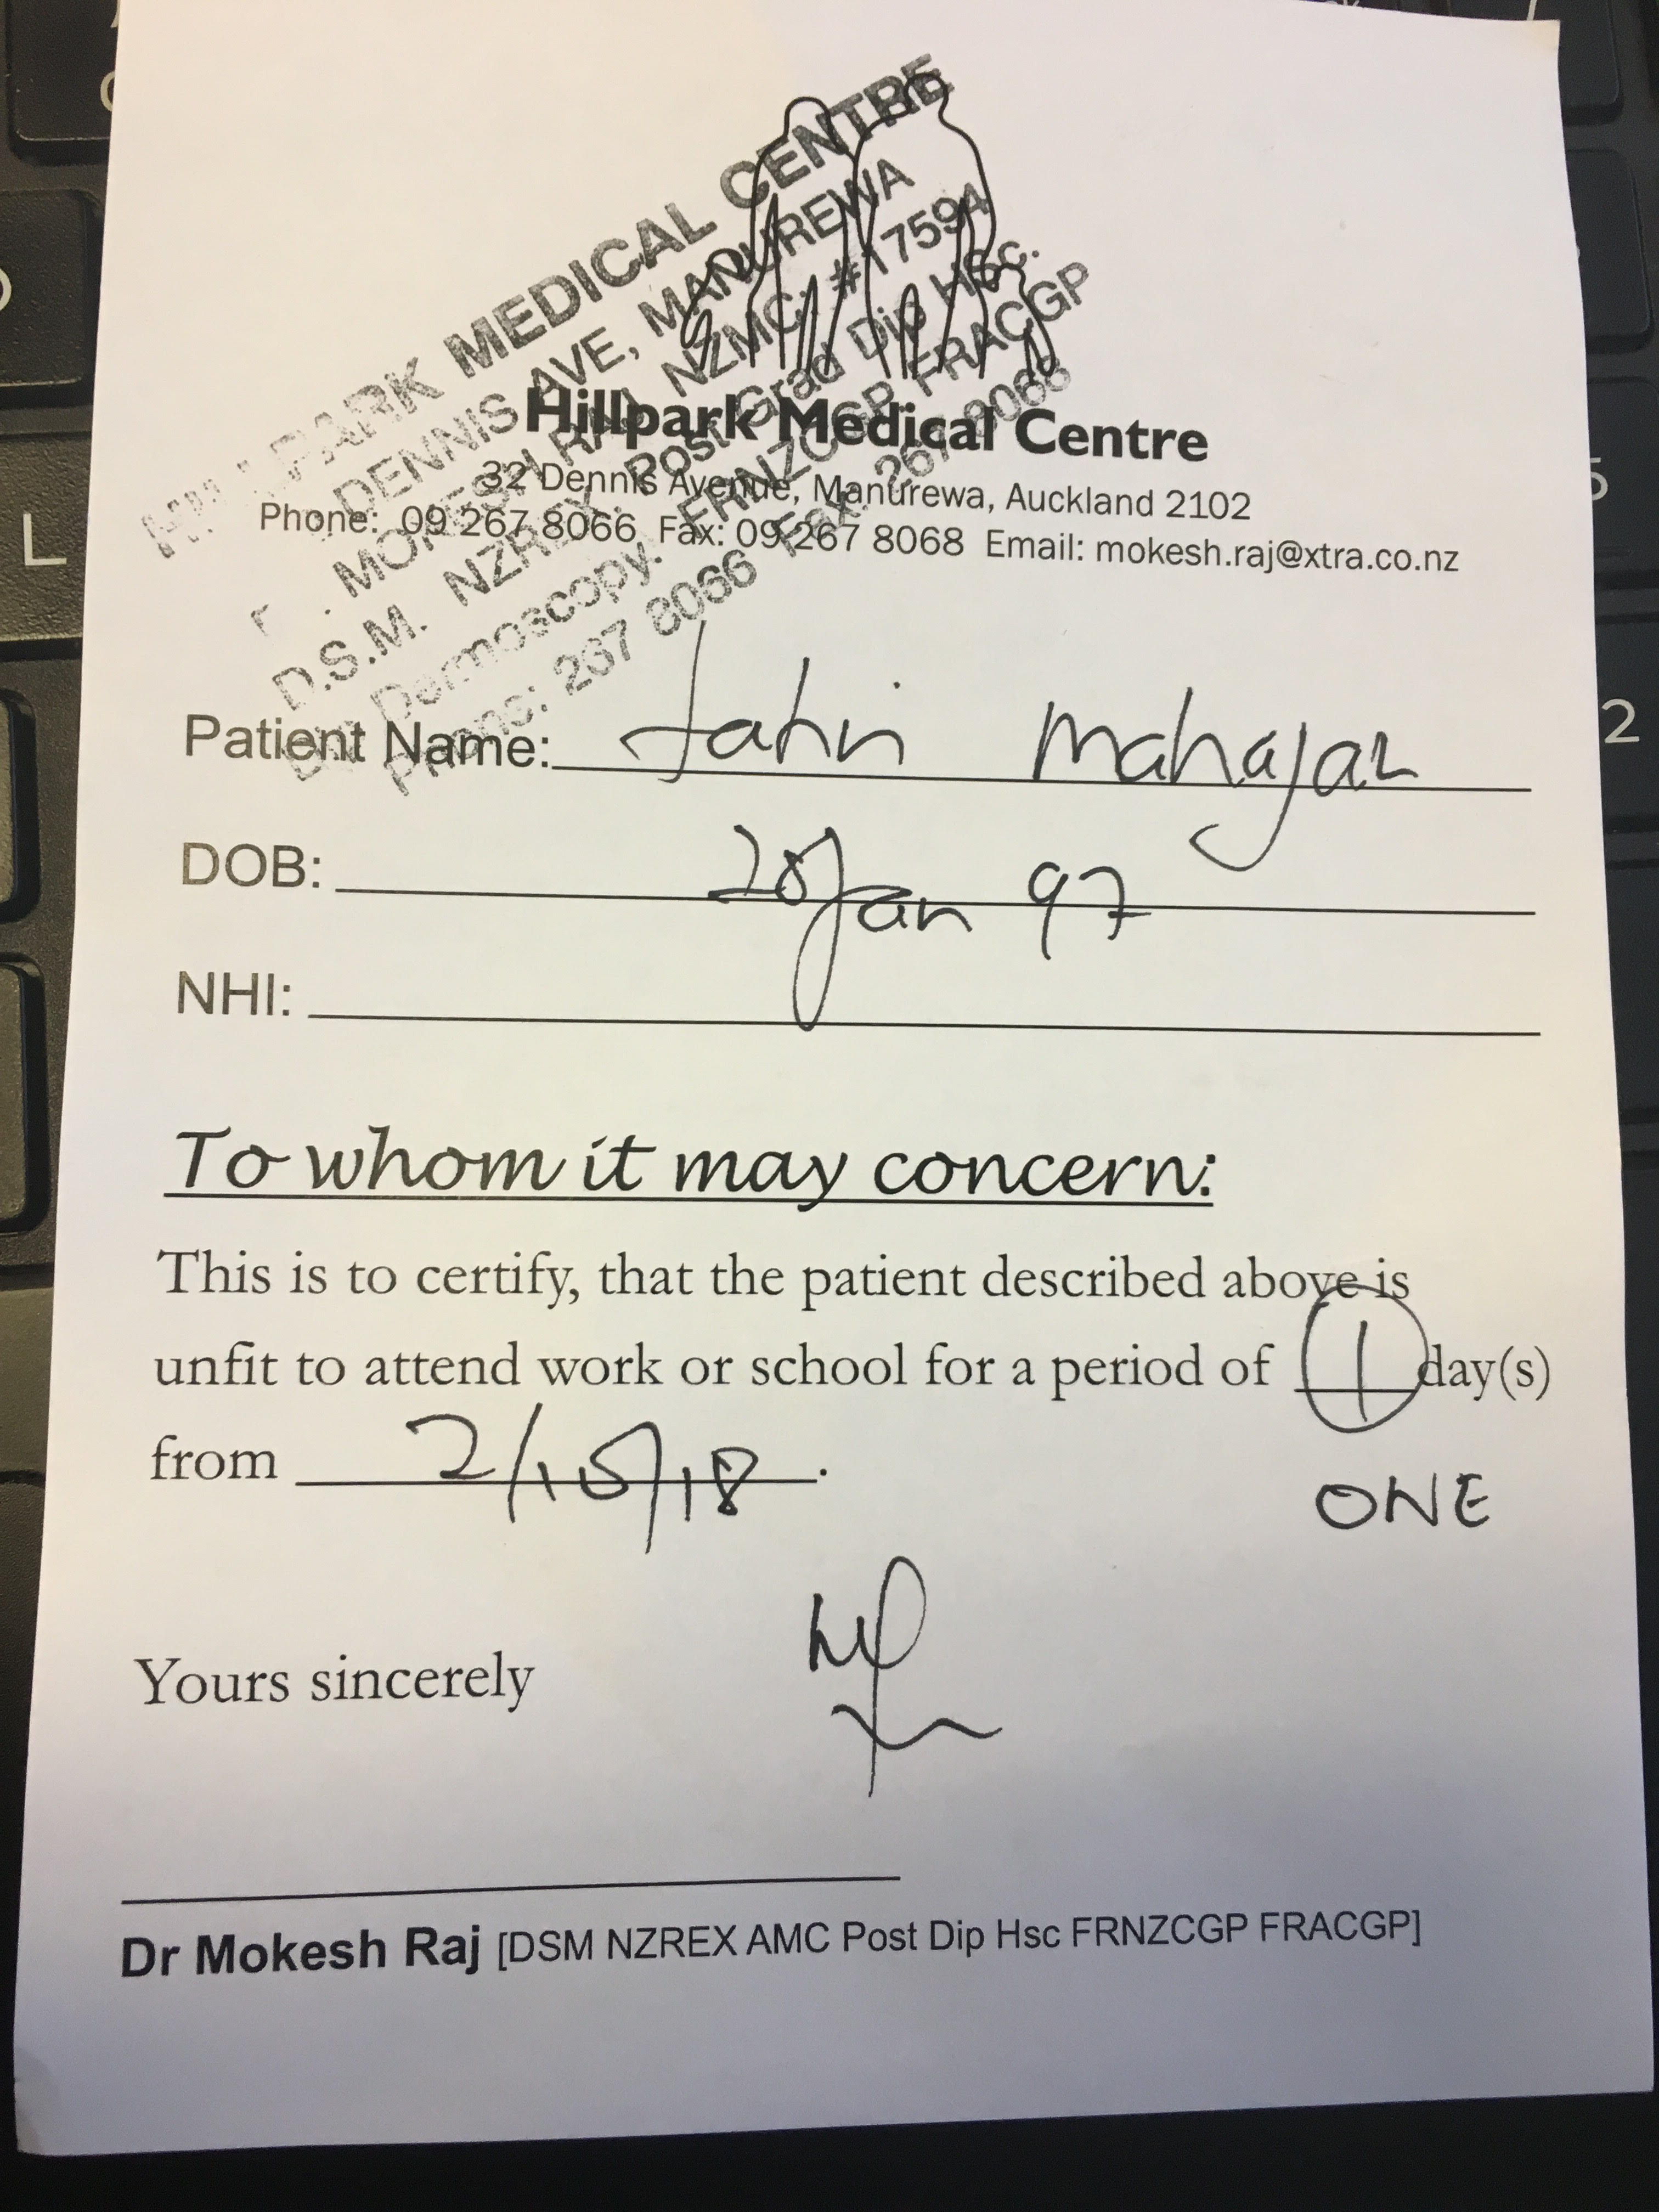 HILLPARK MEDICAL CENTRE
DENNIS AVE, MANUREWA
MOKESH RAJ NZMC: #17594
D.S.M. NZREX. Post Grad Dip HSc.
Dip Dermoscopy. FRNZCGP FRACGP
Phone: 267 8066 Fax: 267 8068
Hillpark Medical Centre
32 Dennis Avenue, Manurewa, Auckland 2102
Phone: 09 267 8066 Fax: 09 267 8068 Email: mokesh.raj@xtra.co.nz
Patient Name: Mahajan
DOB: 28 Jan 97
NHI:
To whom it may concern:
This is to certify, that the patient described above is
unfit to attend work or school for a period of 1 day(s)
from 2/10/18.
ONE
Yours sincerely
Dr Mokesh Raj [DSM NZREX AMC Post Dip Hsc FRNZCGP FRACGP]
L
5
2